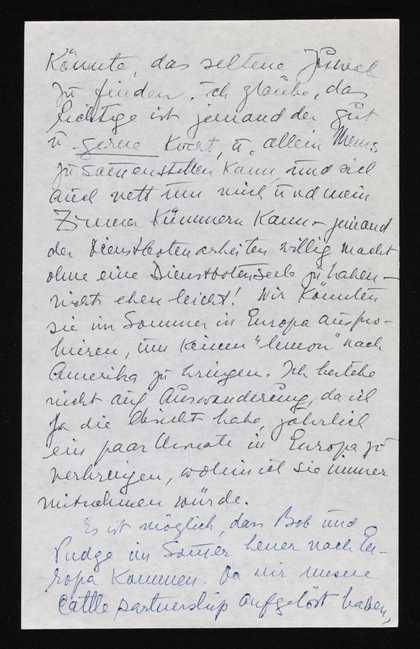 könnte, das seltene Juwel
zu finden. Ich glaube, das
Wichtige ist jemand der gut
u. gerne kocht, u. allein Menus
zusammenstellen kann und sich
auch nett um mich und mein
Zimmer kümmern kann – jemand
der Dienstbotenarbeiten willig macht
ohne eine Dienstbotenseele zu haben –
nicht eben leicht! Wir könnten
sie im Sommer in Europa auspro-
bieren, um keinen "lemon" nach
Amerika zu bringen. Ich bestehe
nicht auf Auswanderung, da ich
ja die Absicht habe, jährlich
ein paar Monate in Europa zu
verbringen, wohin ich sie immer
mitnehmen würde.
Es ist möglich, dass Bob und
Pudge im Sommer heuer nach Eu-
ropa kommen. Da wir unsere
cattle partnership aufgelöst haben,